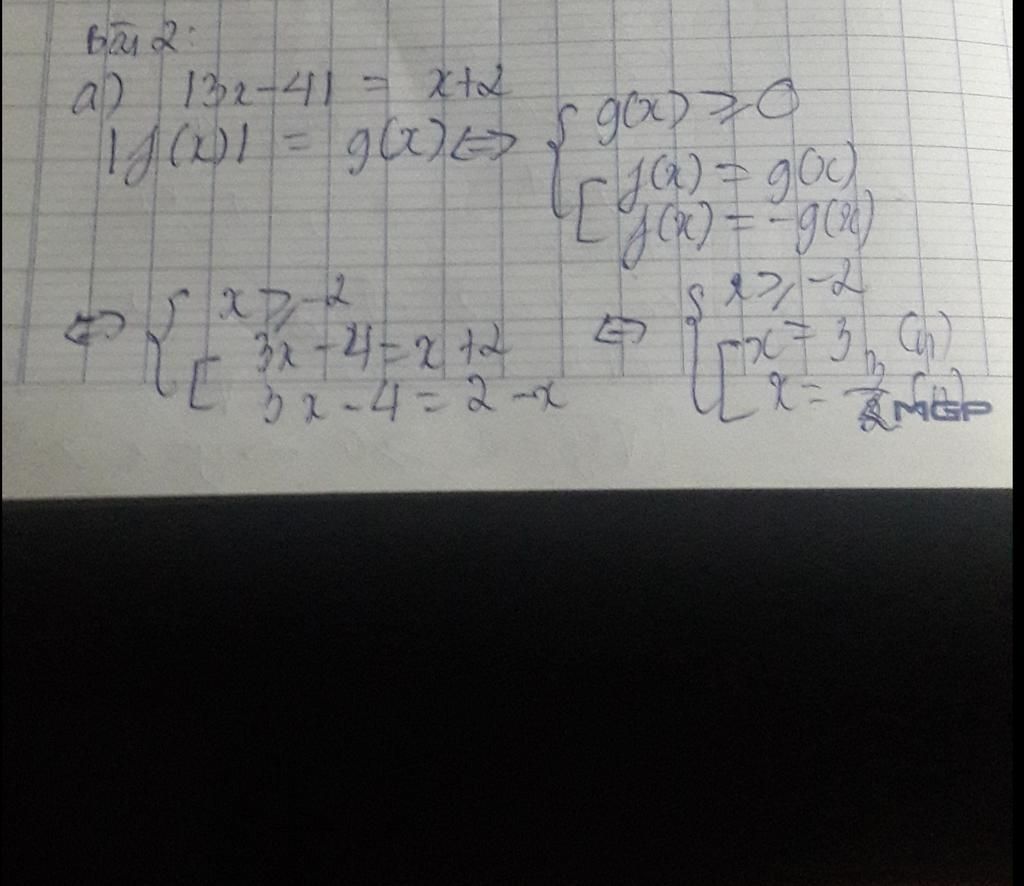 Bài 2:
a) |3x-4| = x+2
|f(x)| = g(x) ⇔ { g(x) ≥ 0
[ f(x) = g(x)
f(x) = -g(x)
⇔ { x ≥ -2 ⇔ { x ≥ -2
[ 3x-4 = x+2 [ x = 3 (n)
3x-4 = 2-x x =
MGP